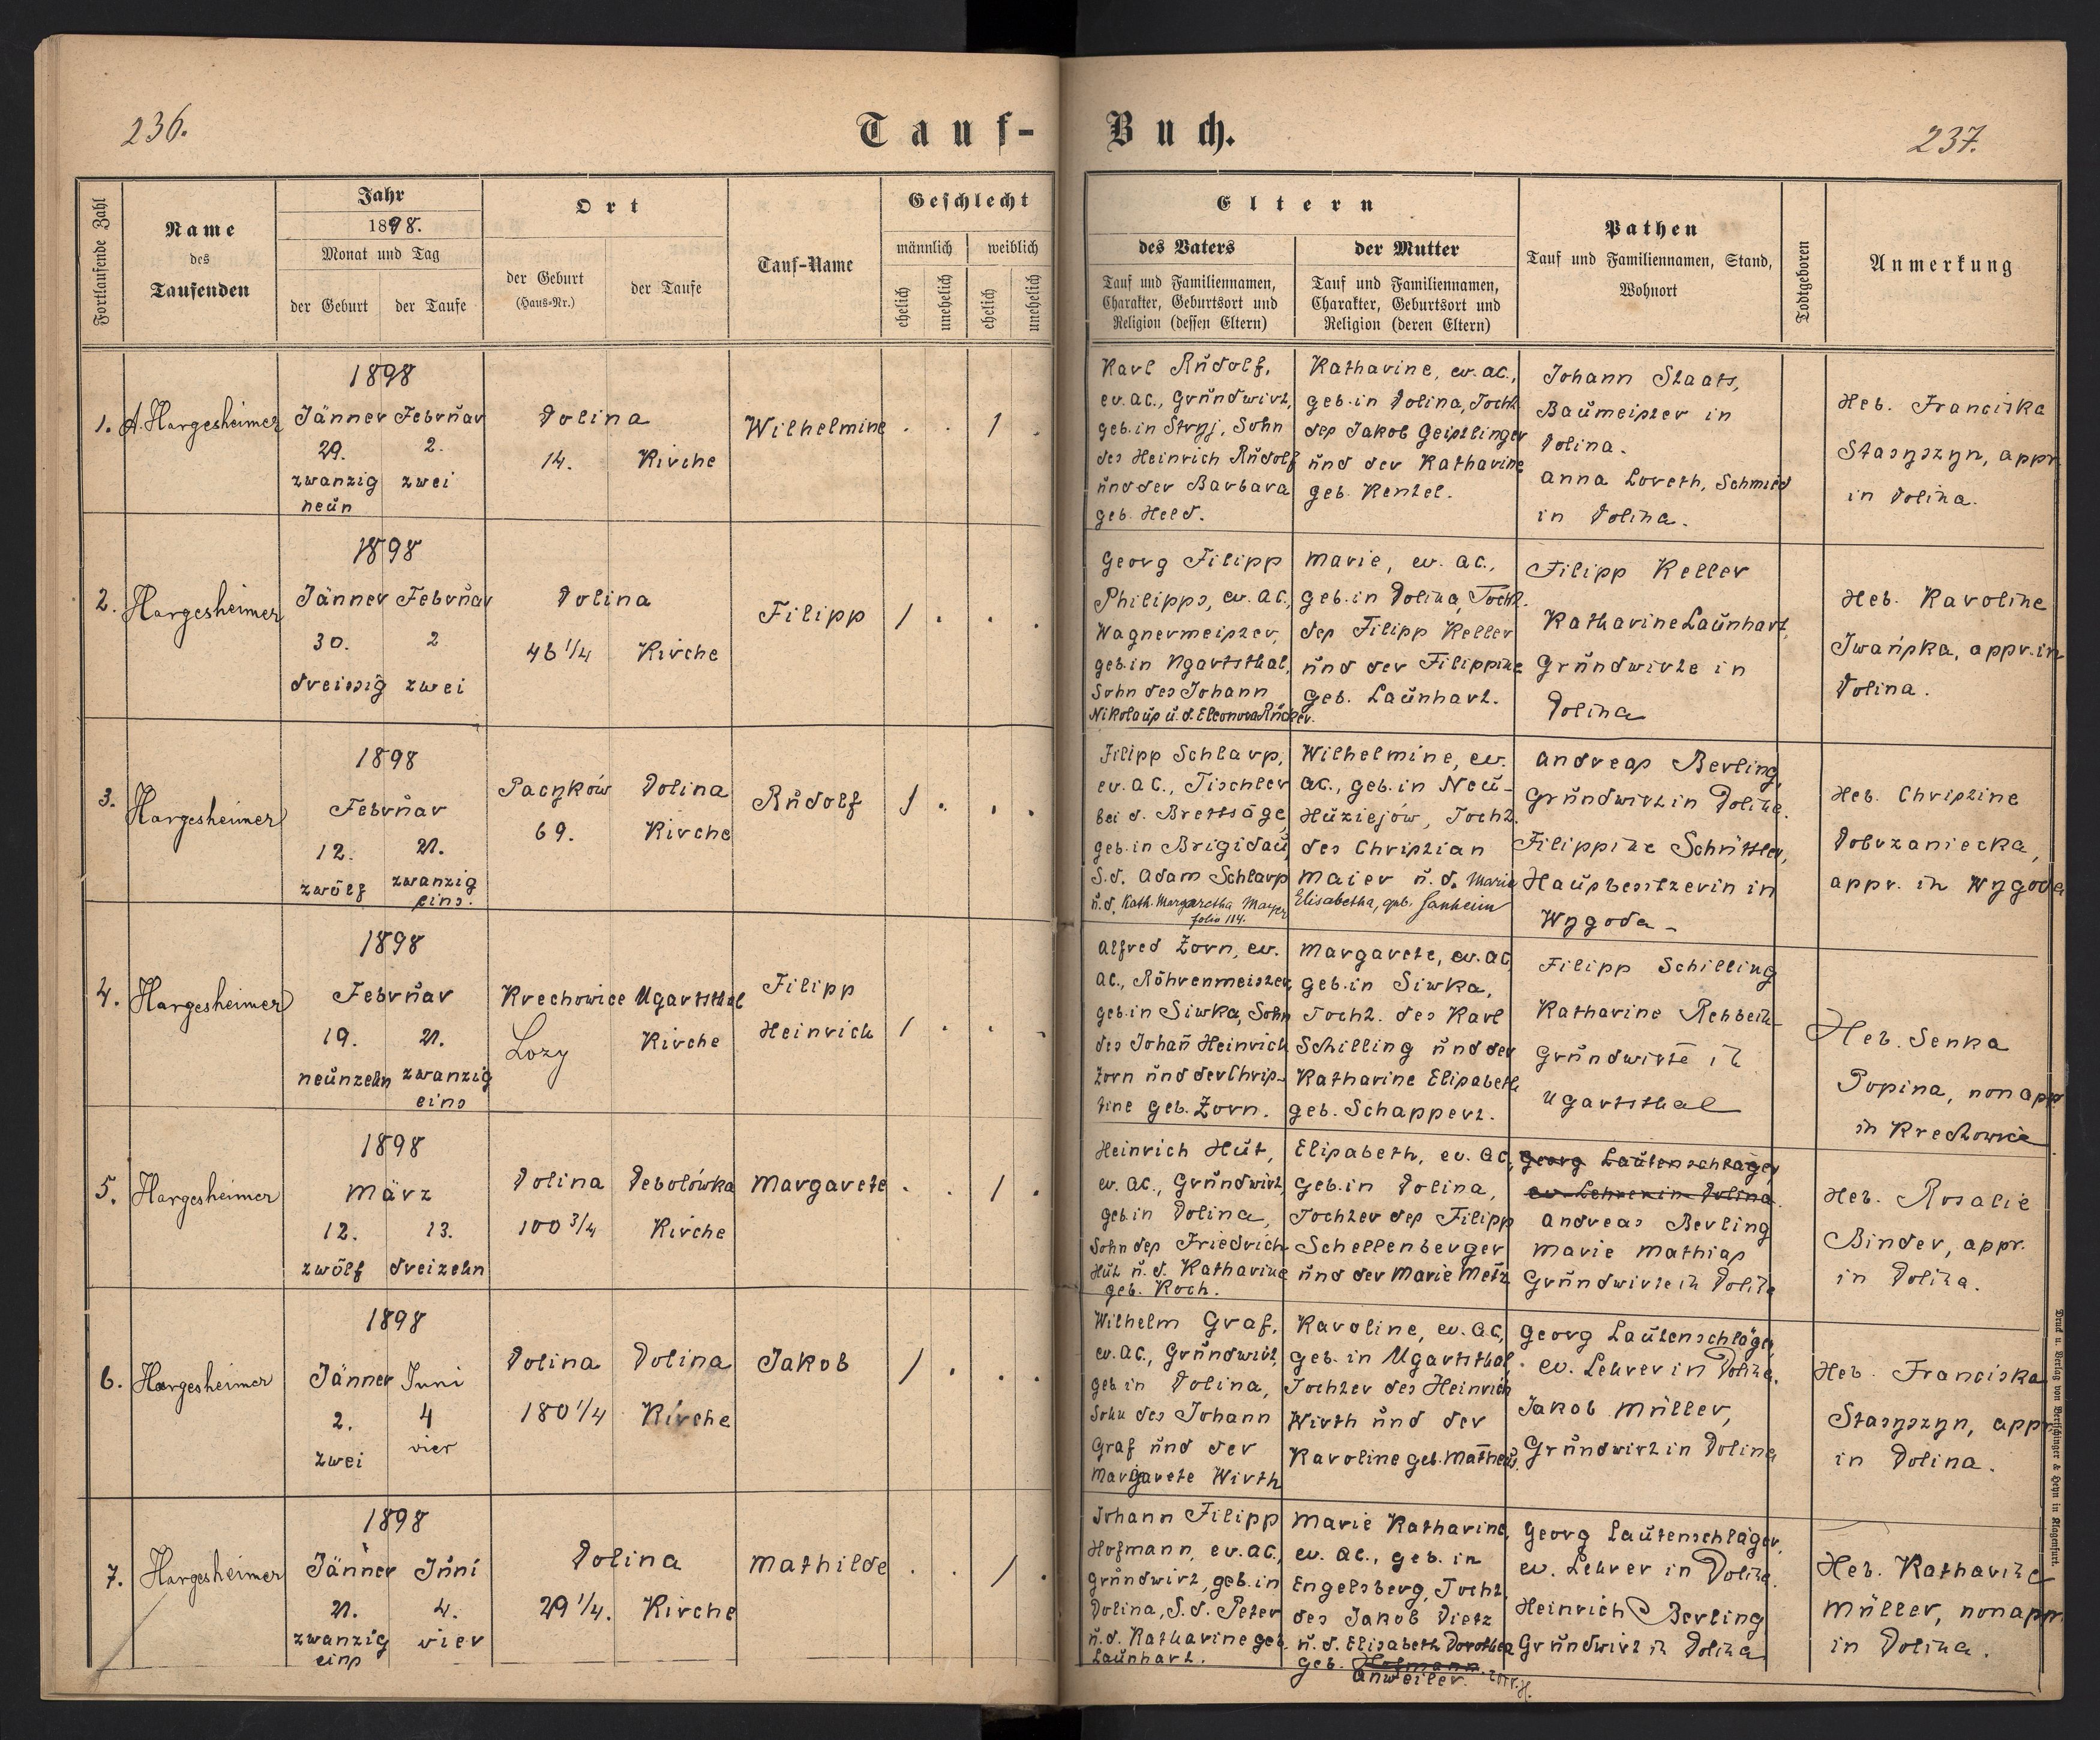 236.
Tauf-
Buch.
237.
Fortlaufende Zahl
Name
des
Taufenden
Jahr
1898.
Monat und Tag
der Geburt
der Taufe
Ort
der Geburt
(Haus-Nr.)
der Taufe
Tauf-Name
Geschlecht
männlich
weiblich
ehelich
unehelich
ehelich
unehelich
Eltern
des Vaters
Tauf und Familiennamen,
Charakter, Geburtsort und
Religion (dessen Eltern)
der Mutter
Tauf und Familiennamen,
Charakter, Geburtsort und
Religion (deren Eltern)
Pathen
Tauf und Familiennamen, Stand,
Wohnort
Todtgeboren
Anmerkung
1.
A. Hargesheimer
1898
Jänner Februar
29. 2.
zwanzig zwei
neun
Dolina
14. Kirche
Wilhelmine
. . 1 .
Karl Rudolf,
ev. AC., Grundwirt,
geb. in Stryj, Sohn
des Heinrich Rudolf
und der Barbara
geb. Held.
Katharine, ev. AC.,
geb. in Dolina, Tocht.
des Jakob Geistlinger
und der Katharine
geb. Kentel.
Johann Staats,
Baumeister in
Dolina.
Anna Loreth, Schmied
in Dolina.
Heb. Franciska
Stasyszyn, appr.
in Dolina.
2.
Hargesheimer
1898
Jänner Februar
30. 2
dreissig zwei
Dolina
46 1/4 Kirche
Filipp
1 . . .
Georg Filipp
Philipps, ev. AC.,
Wagnermeister,
geb. in Ugartsthal,
Sohn des Johann
Nikolaus u. d. Eleonora Rücker.
Marie, ev. AC.,
geb. in Dolina, Tocht.
des Filipp Keller
und der Filippine
geb. Launhart.
Filipp Keller
Katharine Launhart,
Grundwirte in
Dolina
Heb. Karoline
Iwańska, appr. in
Dolina.
3.
Hargesheimer
1898
Februar
12. 21.
zwölf zwanzig
eins.
Pacyków Dolina
69. Kirche
Rudolf
1 . . .
Filipp Schlarp,
ev. AC., Tischler
bei d. Brettsäge,
geb. in Brigidau,
S. d. Adam Schlarp
u. d. Kath. Margaretha Mayer
folio 114.
Wilhelmine, ev.
AC., geb. in Neu-
Huziejów, Tocht.
des Christian
Maier u. d. Maria
Elisabetha, geb. Janheim
Andreas Berling,
Grundwirt in Dolina.
Filippine Schüttler,
Hausbesitzerin in
Wygoda -
Heb. Christine
Dobrzaniecka,
appr. in Wygoda
4.
Hargesheimer
1898
Februar
19. 21.
neunzehn zwanzig
eins
Krechowice Ugartsthal
Lozy Kirche
Filipp
Heinrich
1 . . .
Alfred Zorn, ev.
AC., Röhrenmeister,
geb. in Siwka, Sohn
des Johann Heinrich
Zorn und der Chris-
tine geb. Zorn.
Margarete, ev. AC,
geb. in Siwka,
Tocht. des Karl
Schilling und der
Katharine Elisabeth
geb. Schappert.
Filipp Schilling
Katharine Rehbein
Grundwirte in
Ugartsthal
Heb. Senka
Popina, non appr
in Krechowice
5.
Hargesheimer
1898
März
12. 13.
zwölf dreizehn
Dolina Debolówka
100 3/4 Kirche
Margarete
. . 1 .
Heinrich Hut,
ev. AC., Grundwirt,
geb. in Dolina,
Sohn des Friedrich
Hut u. d. Katharine
geb. Koch.
Elisabeth, ev. AC,
geb. in Dolina,
Tochter des Filipp
Schellenberger
und der Marie Metz
Georg Lautenschläger,
ev. Lehrer in Dolina.
Andreas Berling
Marie Mathias
Grundwirte in Dolina
Heb. Rosalie
Binder, appr.
in Dolina.
6.
Hargesheimer
1898
Jänner Juni
2. 4
zwei vier
Dolina Dolina
180 1/4 Kirche
Jakob
1 . . .
Wilhelm Graf,
ev. AC., Grundwirt,
geb in Dolina,
Sohn des Johann
Graf und der
Margarete Wirth
Karoline, ev. AC,
geb. in Ugartsthal
Tochter des Heinrich
Wirth und der
Karoline geb. Matheus.
Georg Lautenschläger,
ev. Lehrer in Dolina.
Jakob Müller,
Grundwirt in Dolina
Heb. Franciska
Stasyszyn, appr.
in Dolina.
7.
Hargesheimer
1898
Jänner Juni
21. 4.
zwanzig vier
eins
Dolina
29 1/4. Kirche
Mathilde
. . 1 .
Johann Filipp
Hofmann, ev. AC.,
Grundwirt, geb. in
Dolina, S. d. Peter
u. d. Katharine geb.
Launhart.
Marie Katharine,
ev. AC., geb. in
Engelsberg, Tocht.
des Jakob Dietz
u. d. Elisabeth Dorothea
geb. Hofmann.
Anweiler.
Georg Lautenschläger,
ev. Lehrer in Dolina.
Heinrich Berling
Grundwirt in Dolina
Heb. Katharine
Müller, non appr.
in Dolina.
Druck u. Verlag von Bertschinger & Heyn in Klagenfurt.